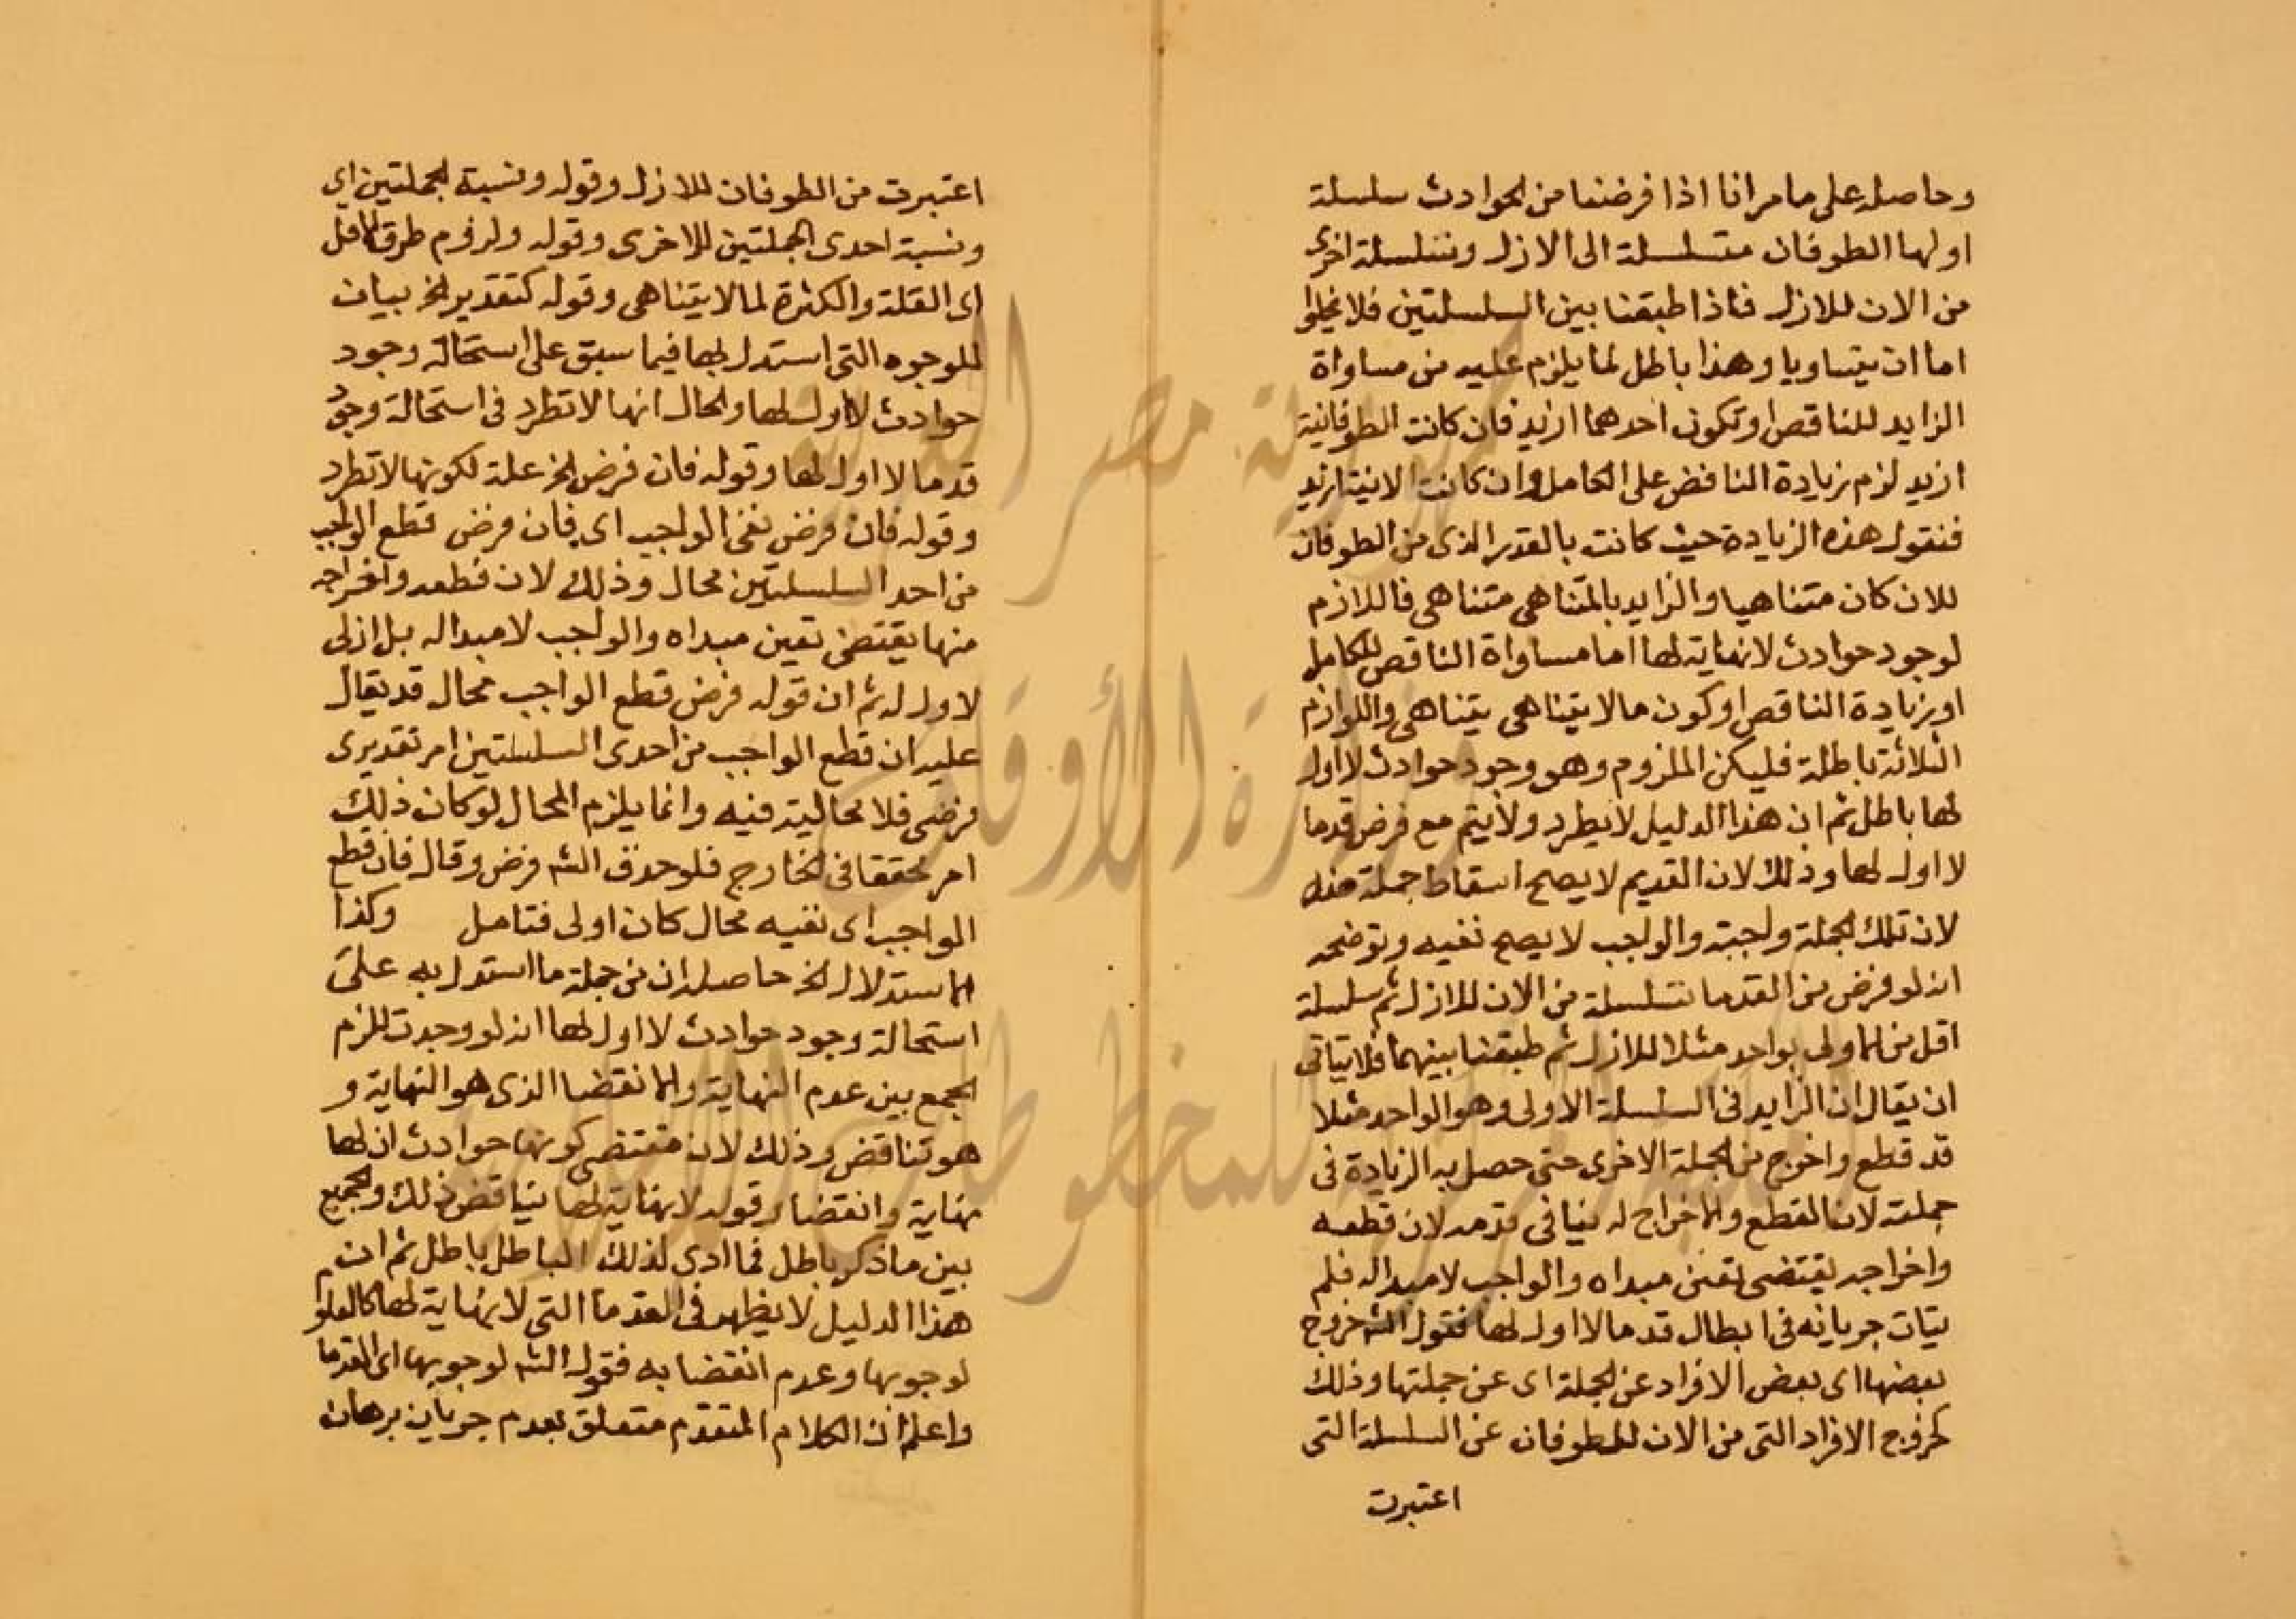 وحاصله على ما مر انا اذا فرضنا من الحوادث سلسلة
اولها الطوفان متسلسلة الى الازل وسلسلة اخرى
من الان للازل فاذا طبقنا بين السلسلتين فلا يخلوا
اما ان يتساويا وهذا باطل لما يلزم عليه من مساواة
الزايد للناقص او تكون احدهما ازيد فان كانت الطوفانية
ازيد لزم زيادة الناقص على الكامل وان كانت الانية ازيد
فنقول هذه الزيادة حيث كانت بالقدر الذى من الطوفان
للان كان متناهيا والزايد بالمتناهى متناهى فاللازم
لوجود حوادث لا نهاية لها اما مساواة الناقص للكامل
او زيادة الناقص او كون ما لا يتناهى يتناهى واللوازم
الثلاثة باطلة فليكن الملزوم وهو وجود حوادث لا اول
لها باطل ثم ان هذا الدليل لا يطرد ولا يتم مع فرض قدما
لا اول لها وذلك لان القديم لا يصح اسقاط جملة منه
لان تلك الجملة واجبة والواجب لا يصح نفيه وتوضحه
انه لو فرض من القدما سلسلة من الان للازل ثم سلسلة
اقل من الاولى بواحد مثلا للازل ثم طبقنا بينهما فلا يتاتى
ان يقال ان الزايد فى السلسلة الاولى وهو الواحد مثلا
قد قطع واخرج من الجملة الاخرى حتى حصل به الزيادة فى
جملته لان القطع والاخراج له ينافى قدمه لان قطعه
واخراجه يقتضى تعين مبداه والواجب لا مبدا له فلم
يتات جريانه فى ابطال قدما لا اول لها فقول الشه خروج
بعضها اى بعض الافراد عن الجملة اى عن جملتها وذلك
كخروج الافراد التى من الان للطوفان عن السلسلة التى
اعتبرت
اعتبرت من الطوفان للازل وقوله ونسبة الجملتين اى
ونسبة احدى الجملتين للاخرى وقوله ولزوم طرق الاقل
اى القلة والكثرة لما لا يتناهى وقوله كتقدير الخ بيان
للوجوه التى استدل بها فيما سبق على استحالة وجود
حوادث لا اول لها والحال انها لا تطرد فى استحالة وجود
قدما لا اول لها وقوله فان فرض الخ علة لكونها لا تطرد
وقوله فان فرض نفى الواجب اى فان فرض قطع الواجب
من احد السلسلتين محال وذلك لان قطعه واخراجه
منها يقتضى تعين مبداه والواجب لا مبدا له بل ازلى
لا اول له ثم ان قوله فرض قطع الواجب محال قد يقال
عليه ان قطع الواجب من احدى السلسلتين امر تقديرى
فرضى فلا محالية فيه وانما يلزم المحال لو كان ذلك
امر محققا فى الخارج فلو حذف الشه فرض وقال فان قطع
الواجب اى نفيه محال كان اولى فتامل وكذا
الاستدلال الخ حاصله ان من جملة ما استدل به على
استحالة وجود حوادث لا اول لها انه لو وجدت للزم
الجمع بين عدم النهاية والانقضا الذى هو النهاية و
هو تناقض وذلك لان مقتضى كونها حوادث ان لها
نهاية وانقضا وقوله لا نهاية لها يناقض ذلك والجمع
بين ما ذكر باطل فما ادى لذلك الباطل باطل ثم ان
هذا الدليل لا يظهر فى القدما التى لا نهاية لها كالعلوم
لوجوبها وعدم انقضا به فقول الشه لوجوبها اى القدما
واعلم ان الكلام المتقدم متعلق بعدم جريان برهان